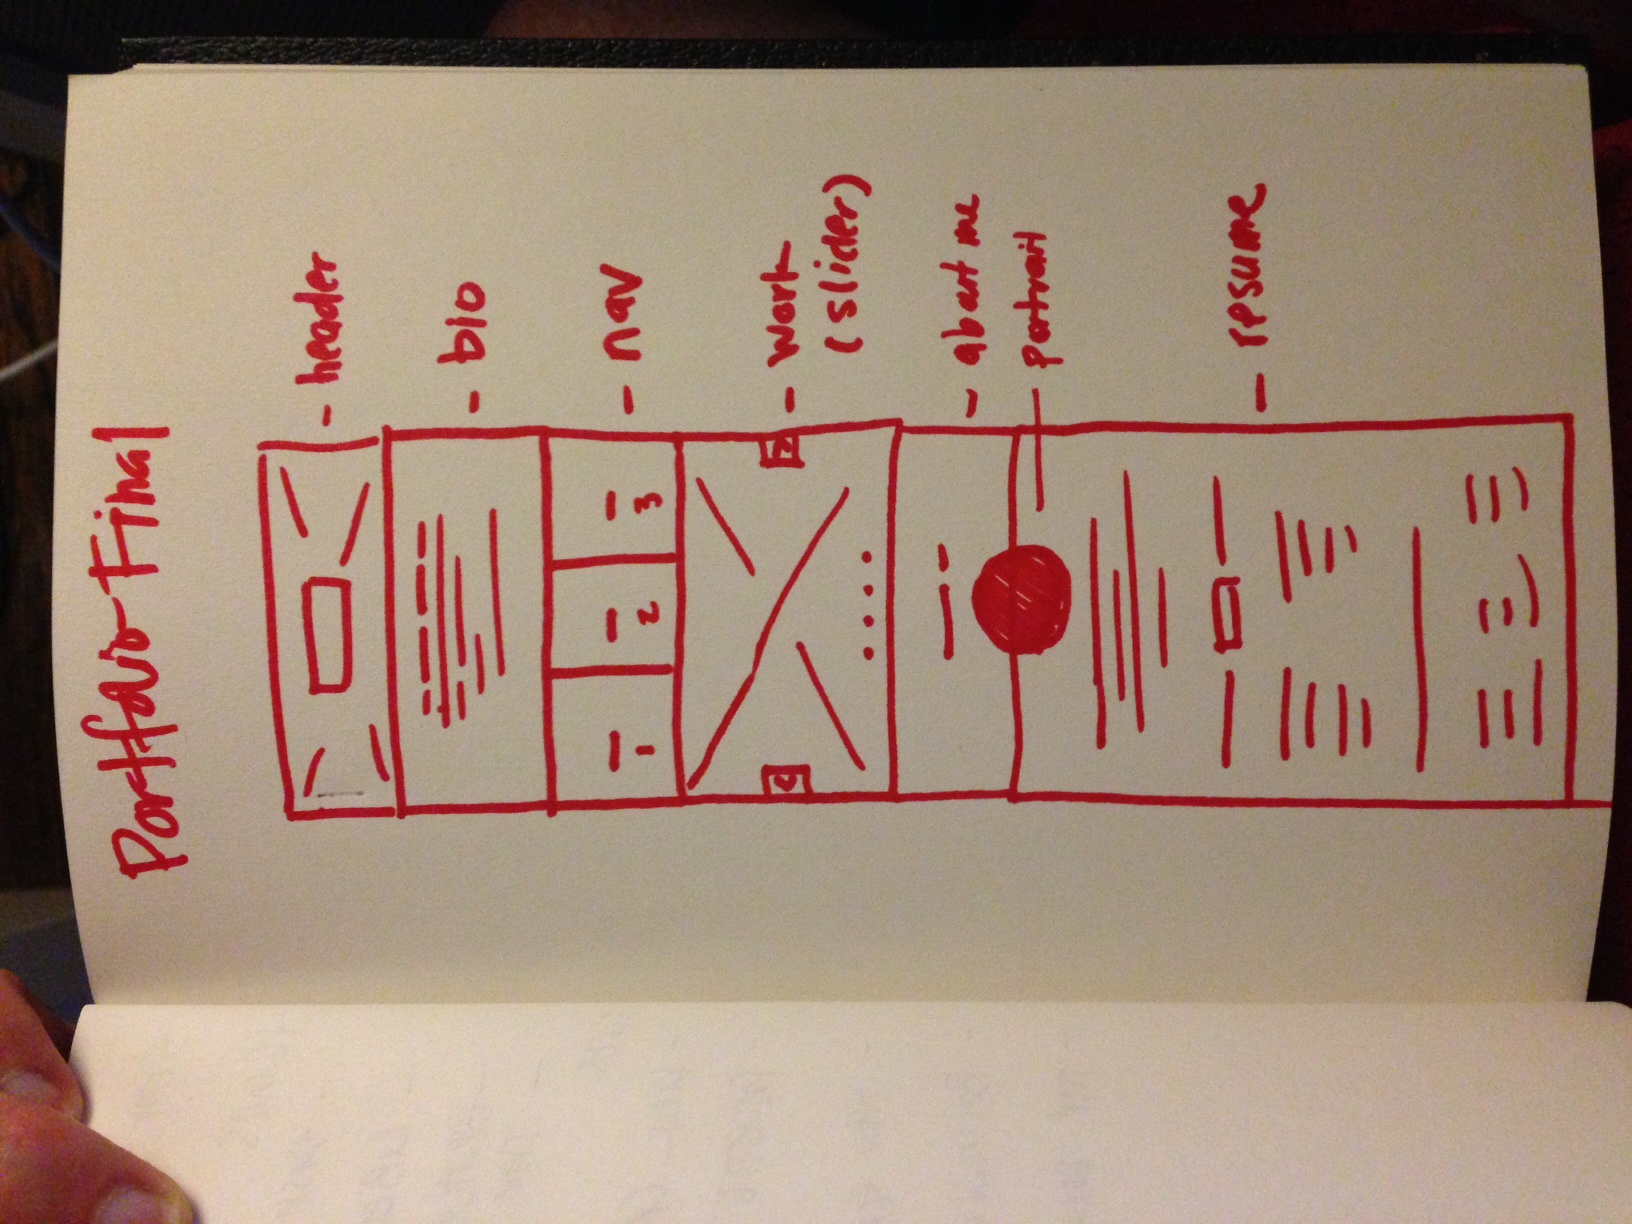 Portfolio Final
- header
- bio
- nav
1 2 3
- work
(slider)
- about me
portrait
- resume